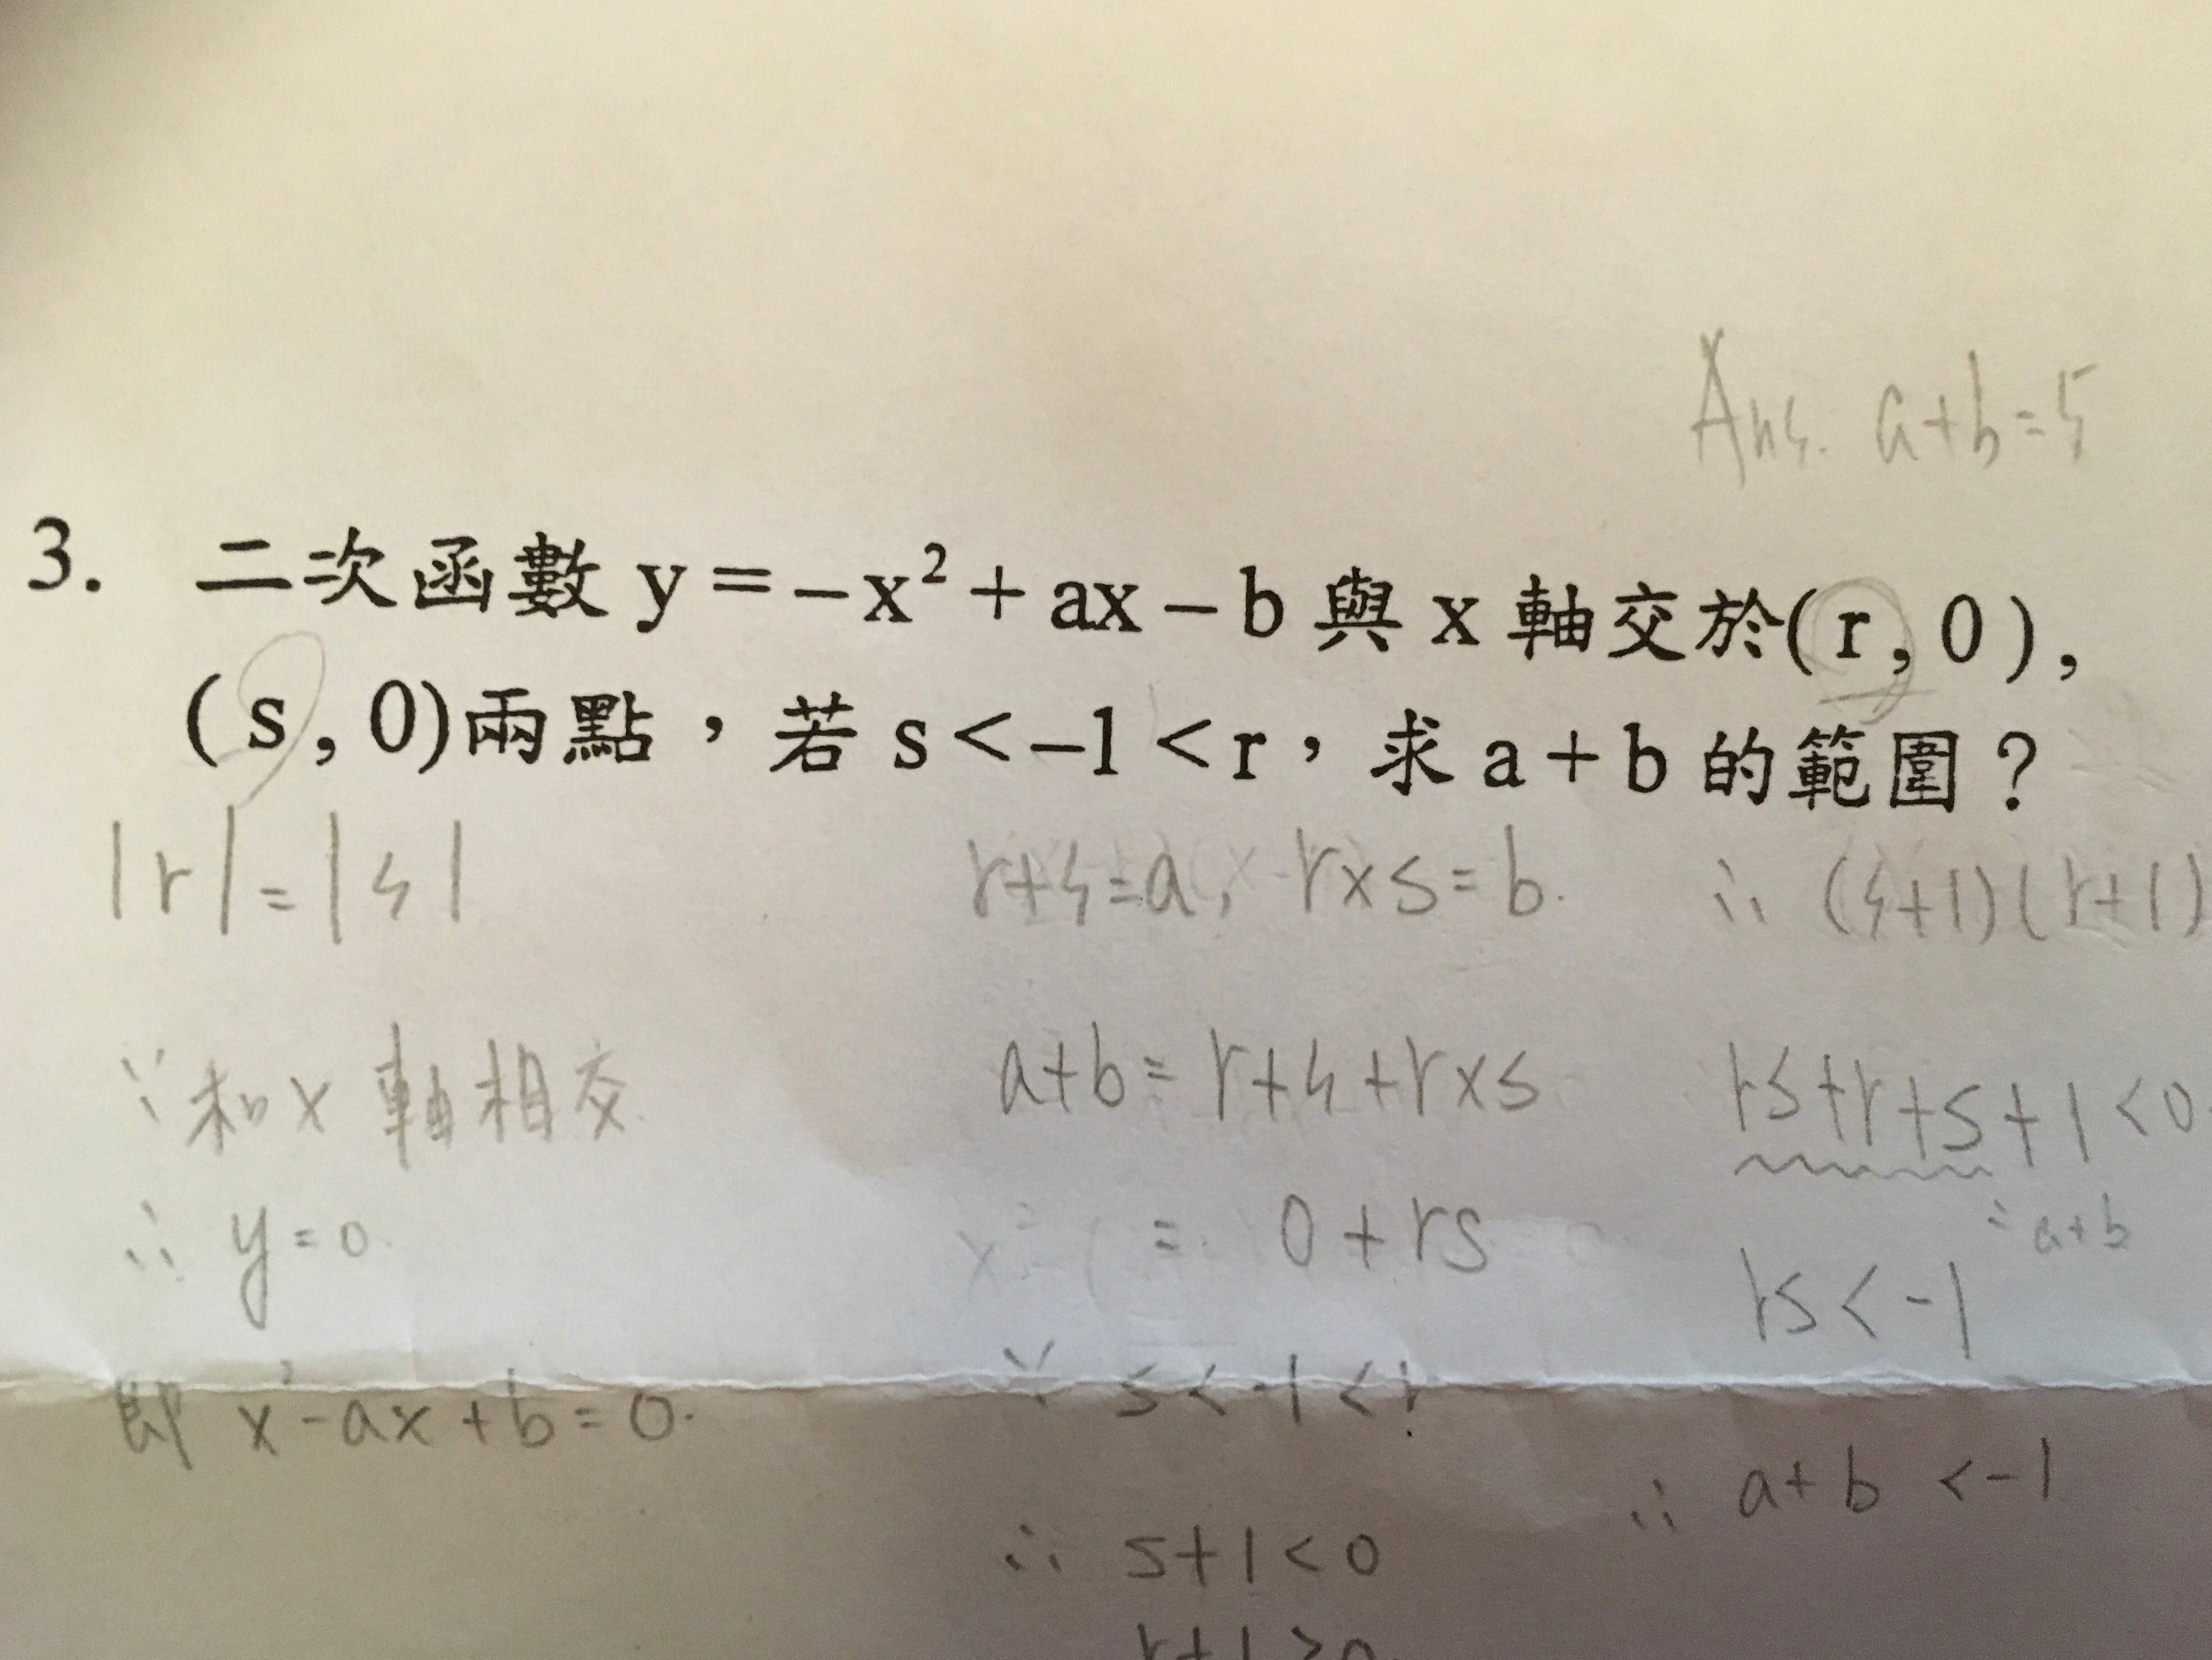 Ans. a+b=5
3. 二次函數 y = –x² + ax – b 與 x 軸交於( r , 0 ) ,
( s , 0)兩點，若 s < –1 < r，求 a + b 的範圍？
|r| = |s|
∵ 和 x 軸相交
∴ y=0.
即 x²-ax+b=0.
r+s=a, r×s=b.
a+b= r+s+r×s
= 0+rs
∵ s<-1<r
∴ s+1<0
r+1>0
∴ (s+1)(r+1)
rs+r+s+1<0
= a+b
rs<-1
∴ a+b <-1